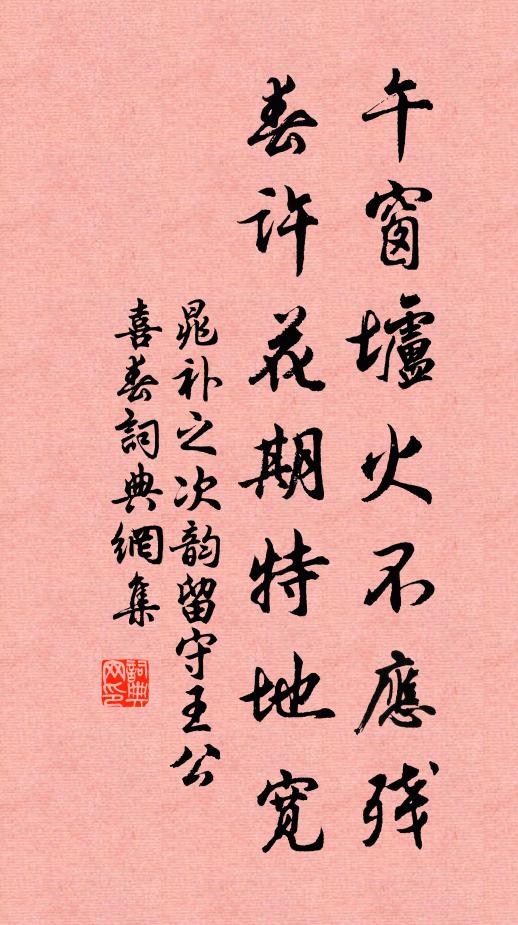 午窗壚火不應残
春許花期特地寬
晁补之次韵留守王公
喜春詞典網集
詞典
网印